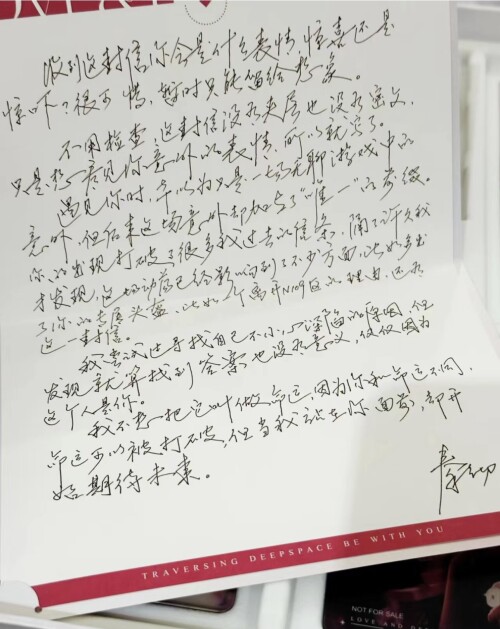 收到这封信你会是什么表情,惊喜还是
惊吓?很可惜,暂时只能留给想象。
不用检查,这封信没有夹层也没有密文,
只是想看见你意外的表情,所以就写了。
遇见你时,本以为只是一场无聊游戏中的
意外,但后来这场意外却加上了“唯一”的前缀。
你的出现打破了很多我过去的信条,隔了许久我
才发现,这场动荡已经影响到了不少方面,比如多出
了你的专属头盔、比如一个离开N109区的理由,还有
这一封信。
我尝试过寻找自己不小心深陷的原因,但
发现就算找到答案也没有意义,仅仅因为
这个人是你。
我不想把它叫做命运,因为你和命运不同,
命运可以被打破,但当我站在你面前,却开
始期待未来。
秦彻
TRAVERSING DEEPSPACE BE WITH YOU
NOT FOR SALE
LOVE AND